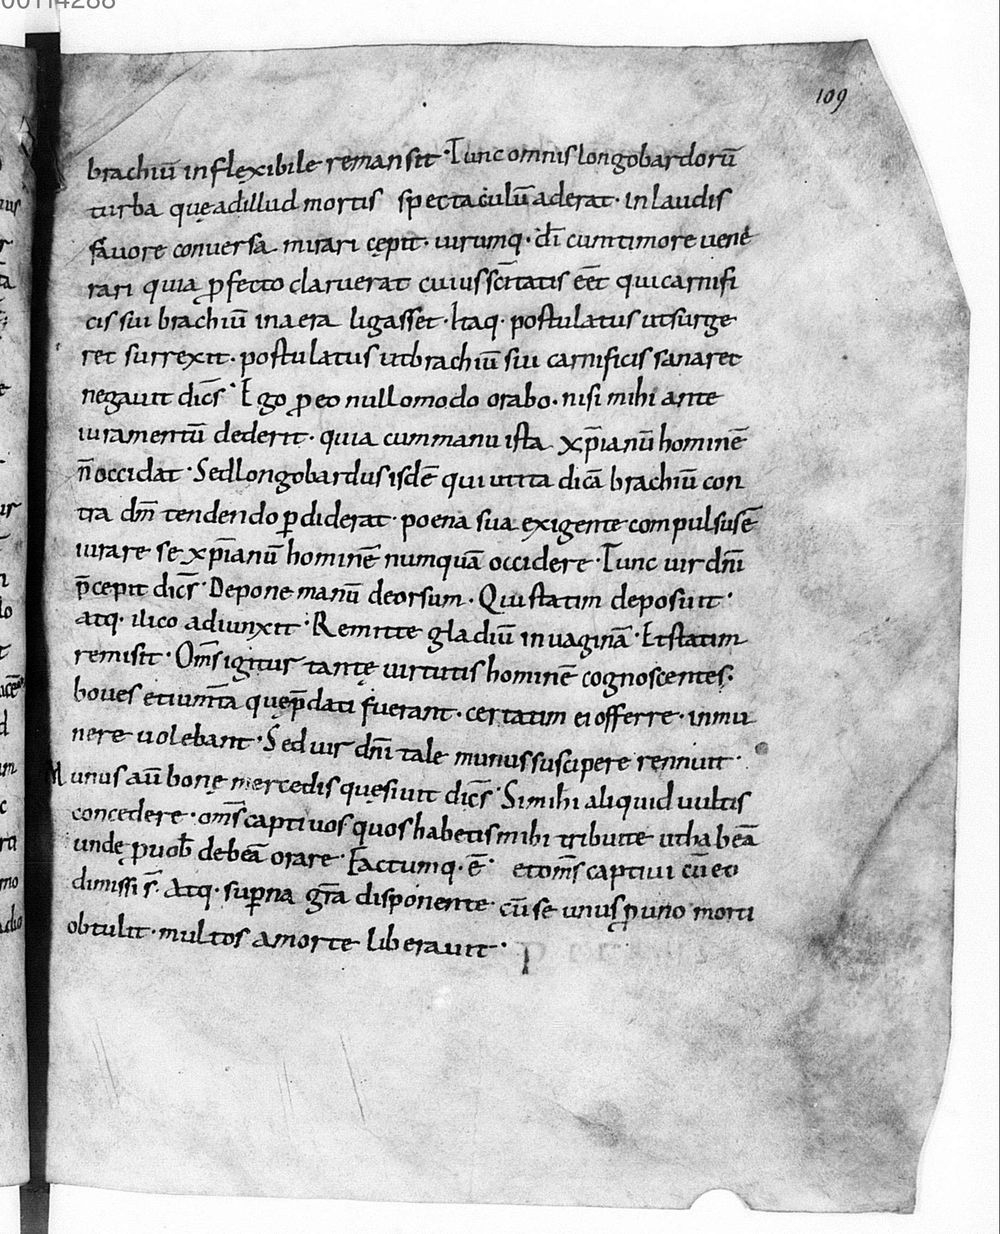 00114288
109
brachiū inflęxibile remansit · Tunc omnis longobardorū
turba quęadillud mortis spectaculū aderat · inlaudis
fauore conuersa mirari cępit · uirumq· dī cumtimore uene
rari quia ꝓfecto claruerat cuius scītatis eēt qui carnifi
cis sui brachiū inaera ligasset · Itaq· postulatus utsurge
ret surrexit · postulatus utbrachiū sui carnificis sanaret
negauit dics̄ · Ego ꝓ eo nullomodo orabo · nisi mihi ante
iuramentū dederit · quia cummanu ista xp̄ianū hominē
n̄ occidat · Sedlongobardus isdē qui ut ita dicā brachiū con
tra dn̄m tendendo ꝑdiderat · poena sua exigente compulsus ē
iurare se xp̄ianū hominē numquā occidere · Tunc uir dn̄i
p̄cepit dics̄ · Depone manū deorsum · Qui statim deposuit ·
atq· ilico adiunxit · Remitte gladiū inuaginā · Et statim
remisit · Om̄s igitur tantę uirtutis hominē cognoscentes ·
boues etiumta quęp̄dati fuerant · certatim ei offerre · inmu
nere uolebant · Sed uir dn̄i tale munus suscipere rennuit ·
Munus aū bonę mercedis quęsiuit dics̄ · Si mihi aliquid uultis
concedere · om̄s captiuos quos habetis mihi tribuite utha beā
undę ꝓ uob̄ debeā orare · Factumq· ē · et om̄s captiui cū eo
dimissi s̄ · Atq· suꝑna gr̄a disponente cū se unus ꝓ uno morti
obtulit · multos amorte liberauit ·